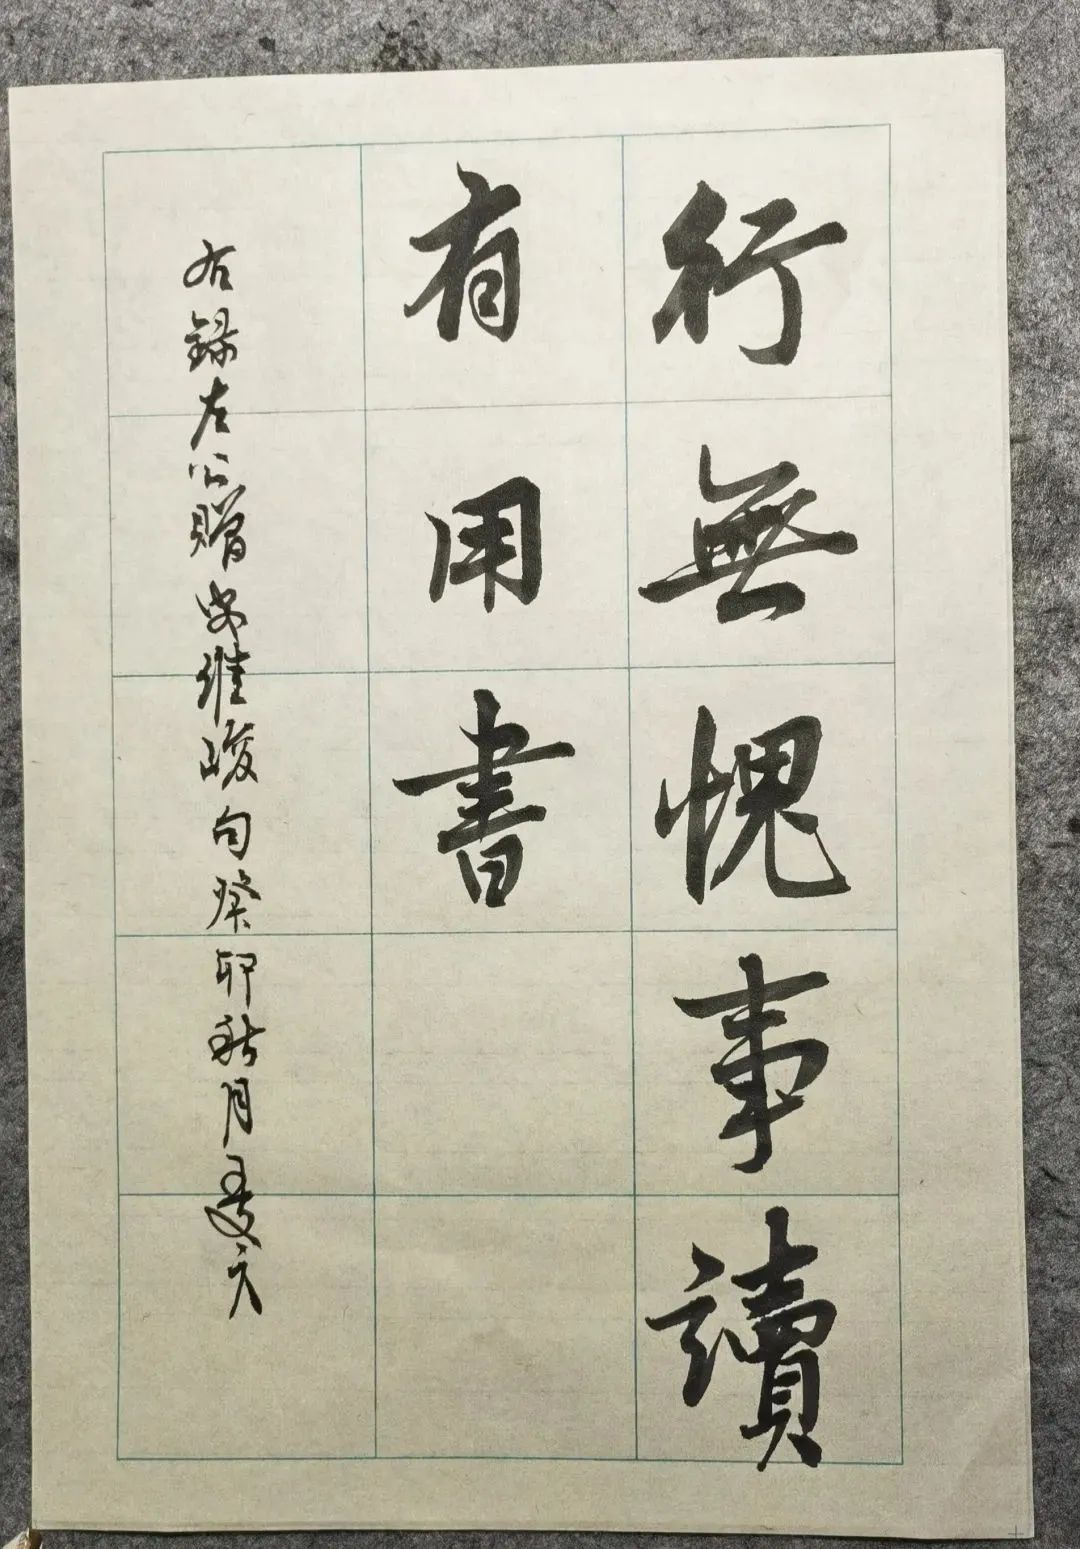 行無愧事讀
有用書
右録左公贈安維峻句癸卯秋月